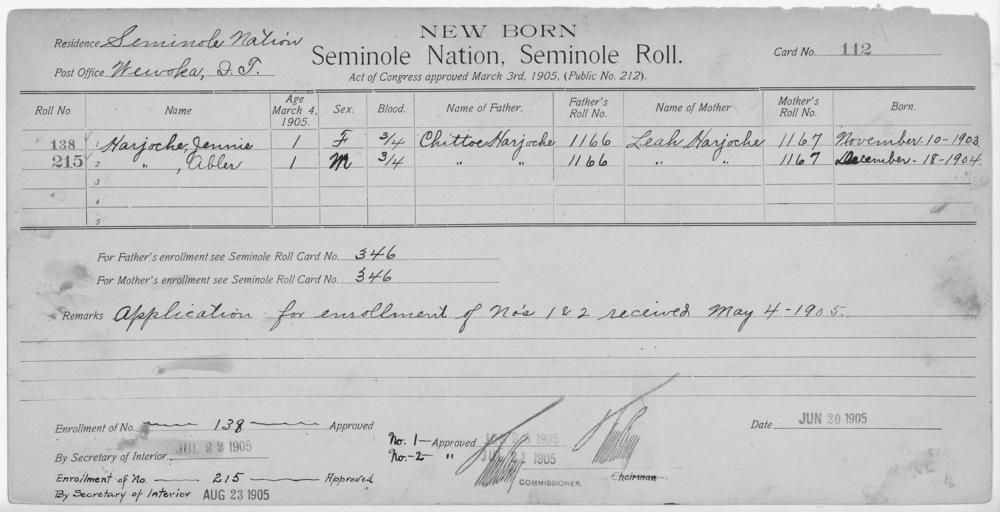 NEW BORN
Residence Seminole Nation
Seminole Nation, Seminole Roll.
Card No. 112
Post Office Wewoka, I. T.
Act of Congress approved March 3rd, 1905, (Public No. 212).
Roll No Name Age March 4, 1905. Sex. Blood. Name of Father. Father's Roll No. Name of Mother Mother's Roll No. Born.
138 1 Harjoche, Jennie 1 F 3/4 Chittoe Harjoche 1166 Leah Harjoche 1167 November-10-1903.
215 2 " , Abler 1 M 3/4 " " 1166 " " 1167 December-18-1904.
3
4
5
For Father's enrollment see Seminole Roll Card No. 346
For Mother's enrollment see Seminole Roll Card No. 346
Remarks Application for enrollment of No's 1 & 2 received May 4-1905.
Date JUN 20 1905
Enrollment of No. 138 Approved
No. 1- Approved 1905
By Secretary of Interior. JUL 22 1905
No.-2- " 1905
Enrollment of No. 215 Approved
COMMISSIONER. Chairman
By Secretary of Interior AUG 23 1905